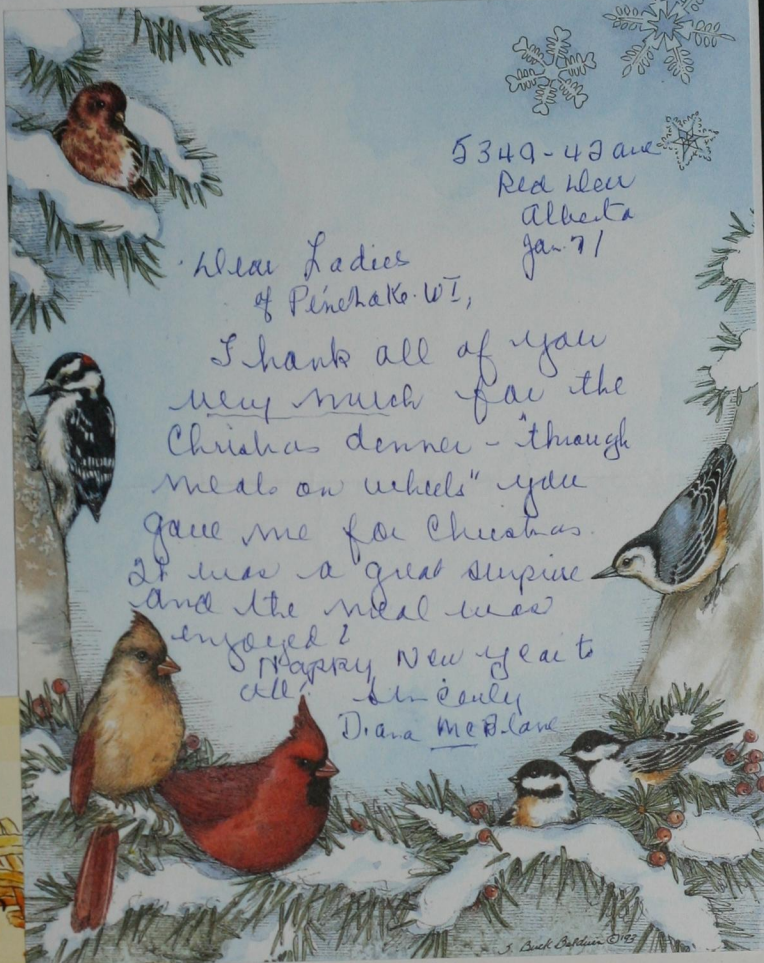 5349 - 42 ave
Red Deer
Alberta
Jan. 7/
Dear Ladies
of Pine Lake W I,
Thank all of you
very much for the
Christmas denner - "through
meals on wheels" you
gave me for Christmas.
It was a great surprise
and the meal was
enjoyed!
Happy New year to
all! Sincerely
Diana
©'93